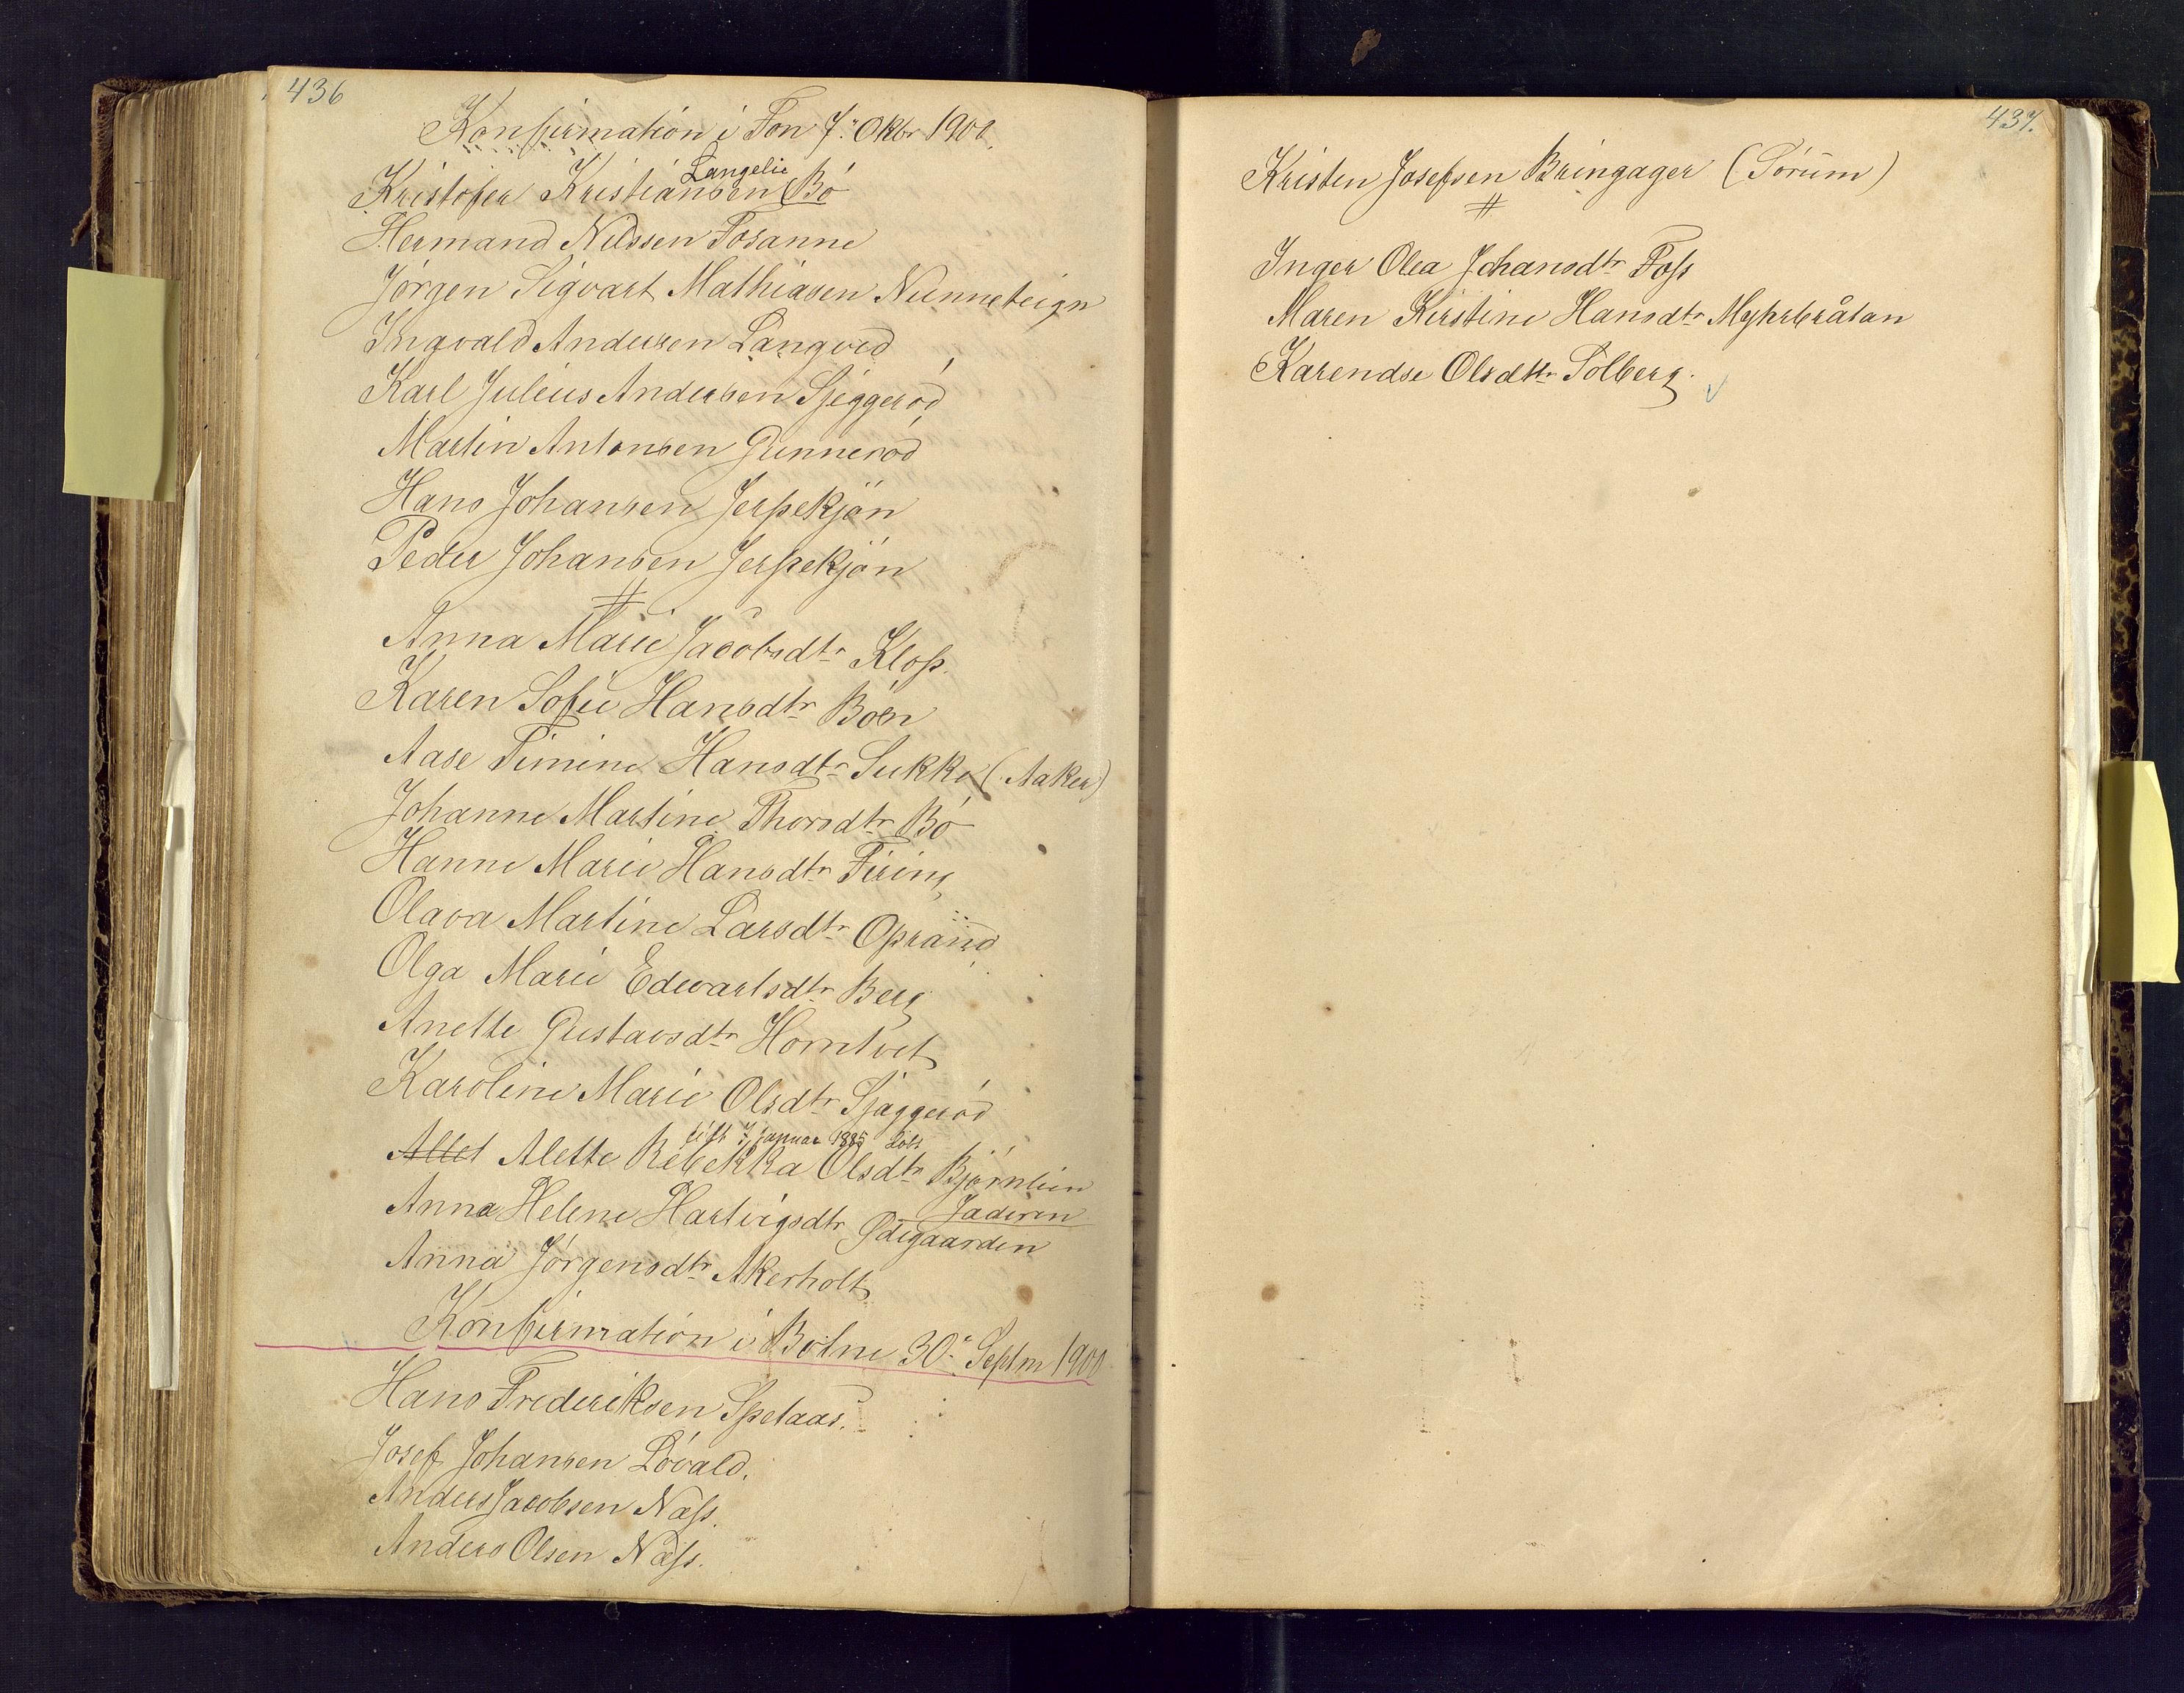 436
Konfirmation i Fon 7de Oktbr 1900.
Langelie
Kristofer Kristiansen Bö
Hermand Nilssen Fosanne
Jörgen Sigvart Mathiasen Nunneteign
Ingvald Andersen Langved
Karl Julius Andersen Sjeggeröd
Martin Antonsen Gunneröd
Hans Johansen Jerpekjön
Peder Johansen Jerpekjön
#
Anna Marie Jacobsdtr Kloss.
Karen Sofie Hansdtr Böen
Aase Timine Hansdtr Sukke (Aaker)
Johanne Martine Thorsdtr Bö
Hanne Marie Hansdtr Firing
Olava Martine Larsdtr Opraund
Olga Marie Edvartsdtr Berg
Anette Gustavsdtr Horntvet
Karoline Marie Olsdtr Sjaggeröd
född 7 januar 1885
Allet Alette Rebekka Olsdtr Björnlien
Jaderen
Anna Helene Hartvigsdtr Ødegaarden
Anna Jörgensdtr Akerholt
Konfirmation i Botne 30te Septm 1900
Hans Frederiksen Spetaas.
Josef Johansen Lövald.
Anders Jacobsen Næss.
Anders Olsen Næss.
437.
Kristen Josefsen Bringager (Sörum)
#
Inger Olea Johansdtr Foss
Maren Kirstine Hansdtr Myhrbråtan
Karendse Olsdttr Solberg.